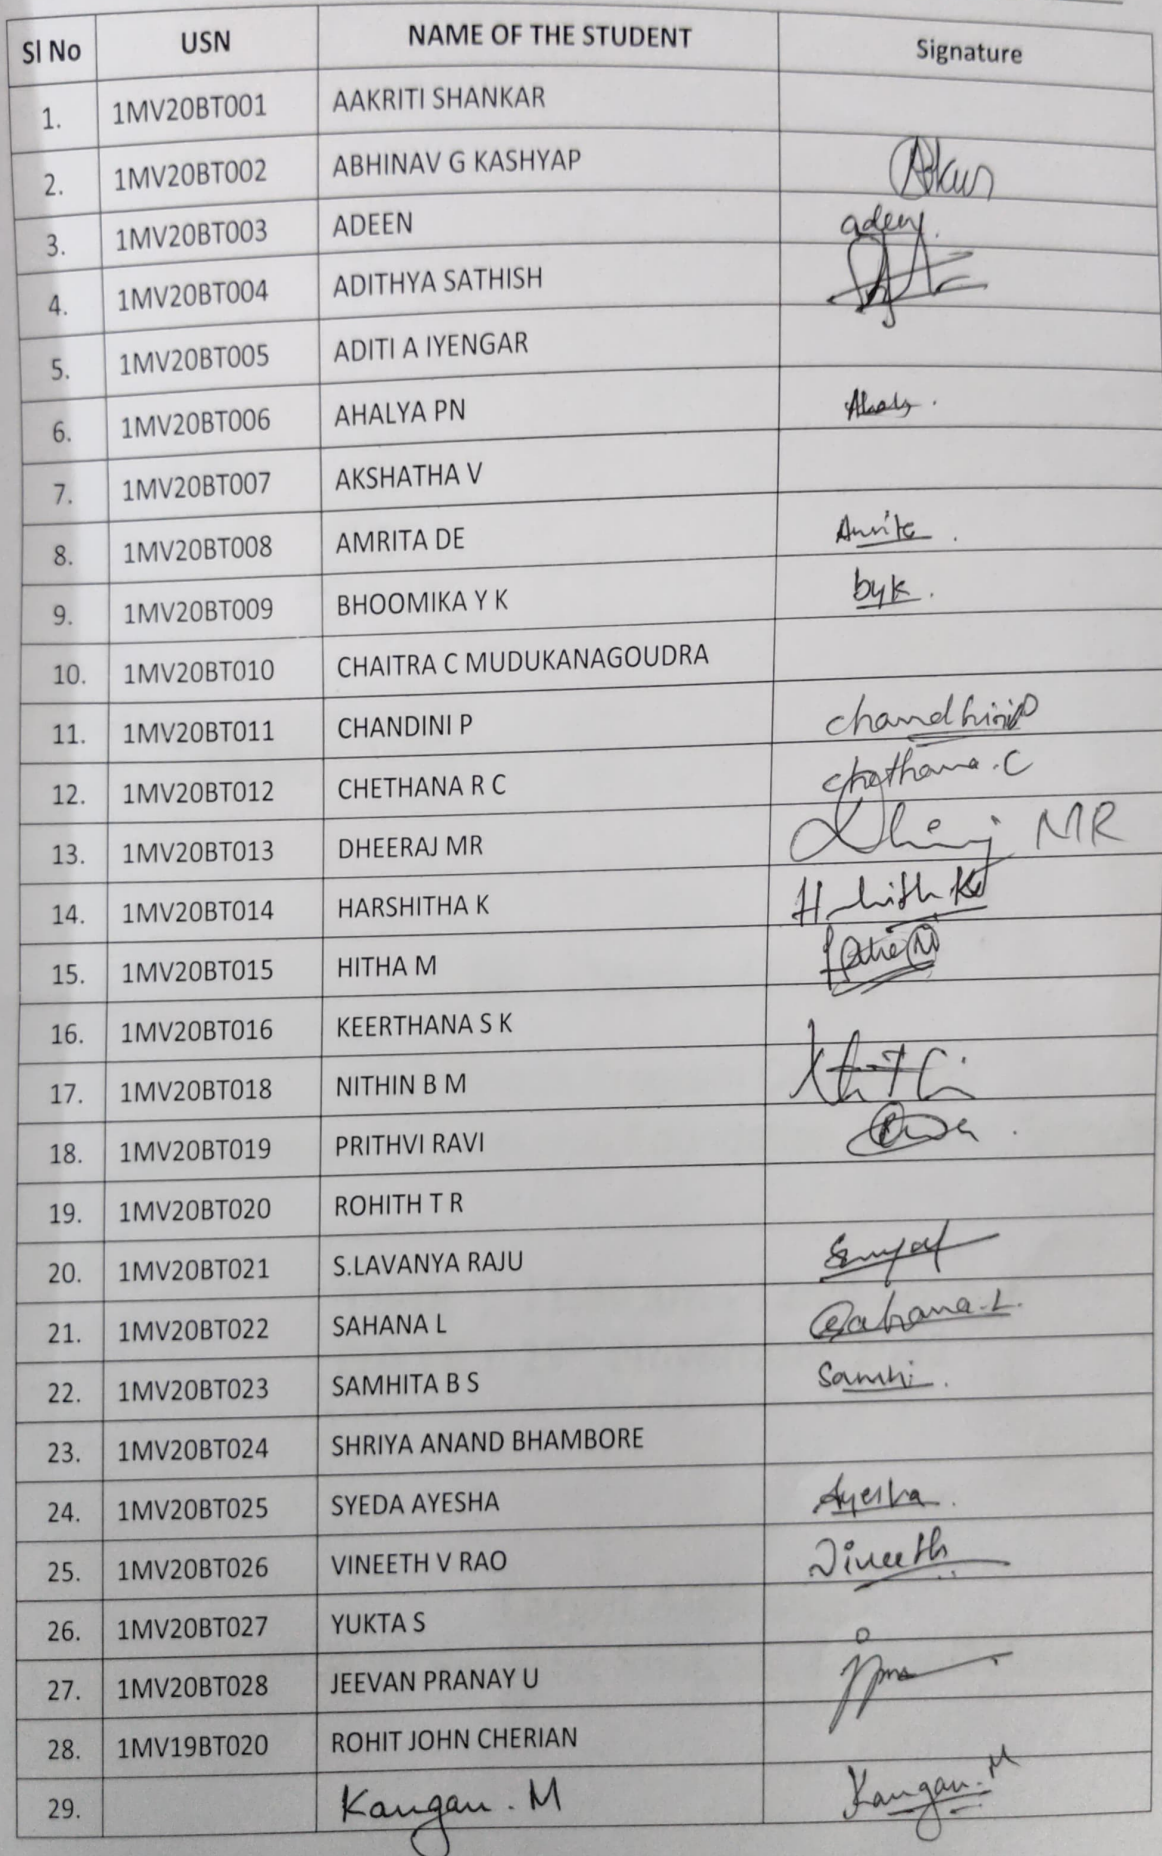 Sl No USN NAME OF THE STUDENT Signature
1. 1MV20BT001 AAKRITI SHANKAR
2. 1MV20BT002 ABHINAV G KASHYAP
3. 1MV20BT003 ADEEN adeen.
4. 1MV20BT004 ADITHYA SATHISH
5. 1MV20BT005 ADITI A IYENGAR
6. 1MV20BT006 AHALYA PN
7. 1MV20BT007 AKSHATHA V
8. 1MV20BT008 AMRITA DE
9. 1MV20BT009 BHOOMIKA Y K byk.
10. 1MV20BT010 CHAITRA C MUDUKANAGOUDRA
11. 1MV20BT011 CHANDINI P
12. 1MV20BT012 CHETHANA R C Chethana.C
13. 1MV20BT013 DHEERAJ MR MR
14. 1MV20BT014 HARSHITHA K
15. 1MV20BT015 HITHA M
16. 1MV20BT016 KEERTHANA S K
17. 1MV20BT018 NITHIN B M
18. 1MV20BT019 PRITHVI RAVI
19. 1MV20BT020 ROHITH T R
20. 1MV20BT021 S.LAVANYA RAJU
21. 1MV20BT022 SAHANA L Sahana.L.
22. 1MV20BT023 SAMHITA B S Samhi.
23. 1MV20BT024 SHRIYA ANAND BHAMBORE
24. 1MV20BT025 SYEDA AYESHA Ayesha.
25. 1MV20BT026 VINEETH V RAO Vineeth
26. 1MV20BT027 YUKTA S
27. 1MV20BT028 JEEVAN PRANAY U
28. 1MV19BT020 ROHIT JOHN CHERIAN
29. Kangan.M Kangan.M